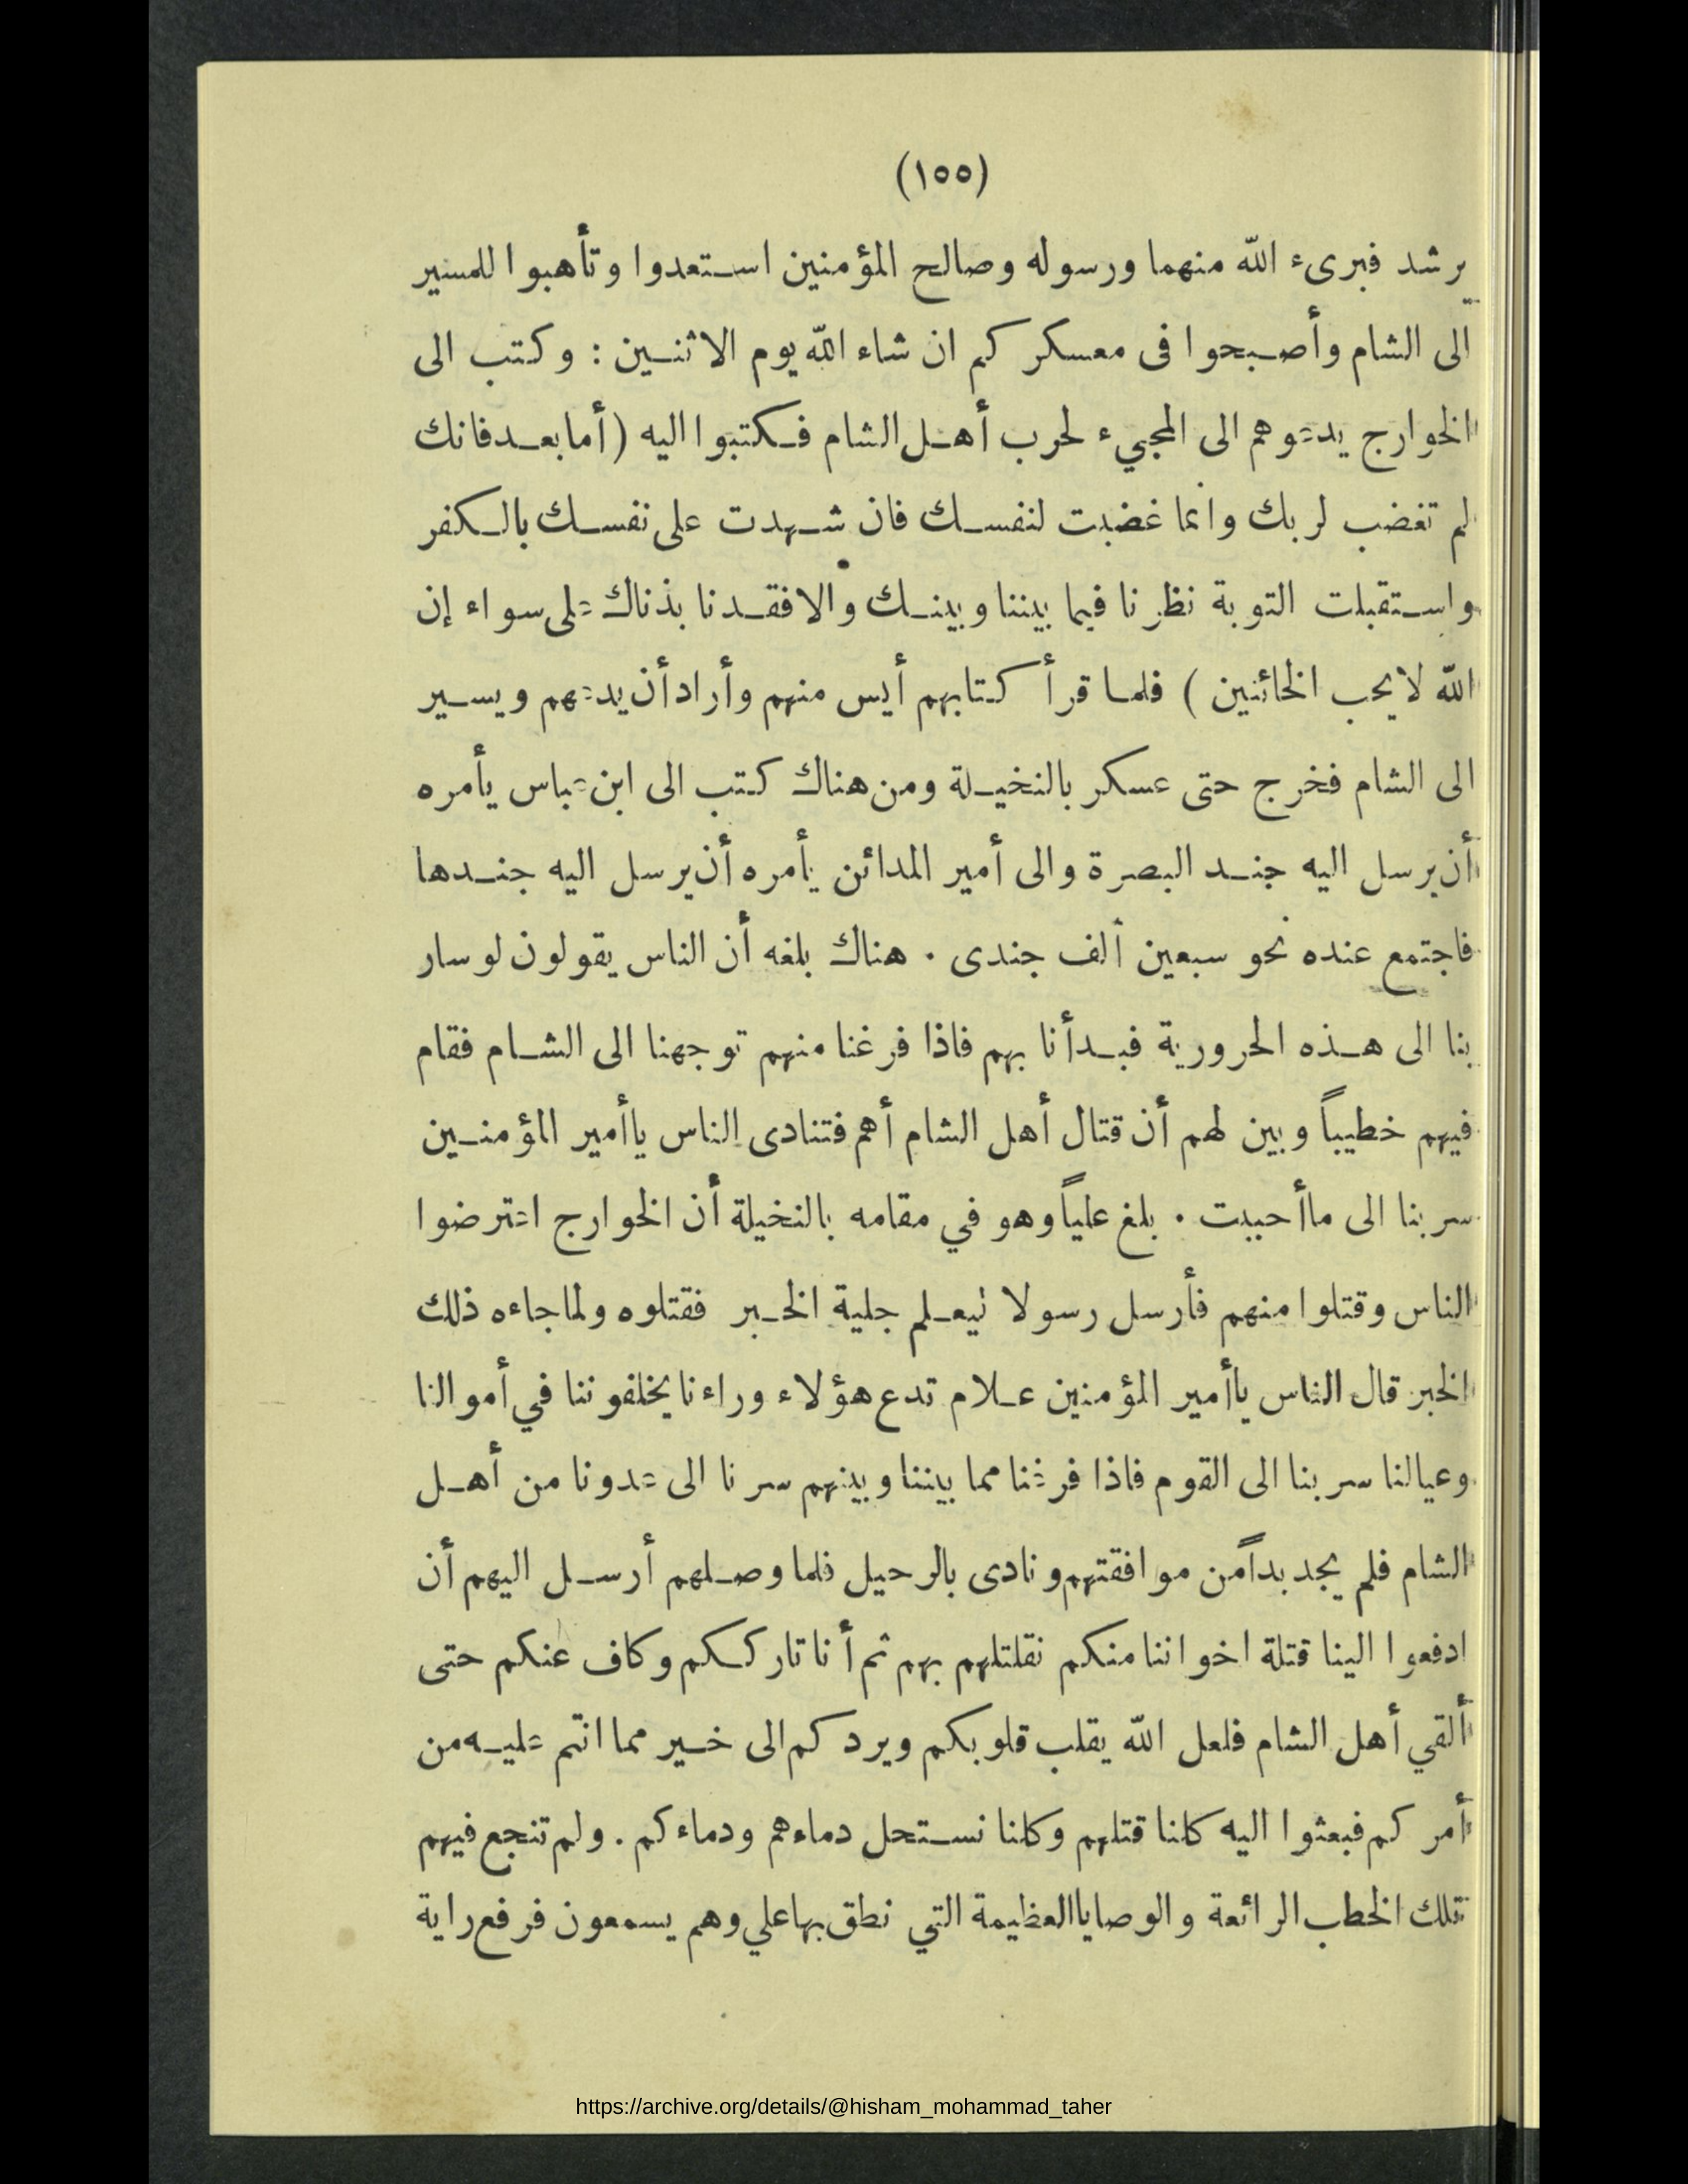 (١٥٥)
يرشد فبرىء الله منهما ورسوله وصالح المؤمنين استعدوا وتأهبوا للمسير
الى الشام وأصبحوا فى معسكركم ان شاء الله يوم الاثنين : وكتب الى
الخوارج يدعوهم الى المجيء لحرب أهل الشام فكتبوا اليه (أما بعد فانك
لم تغضب لربك وانما غضبت لنفسك فان شهدت على نفسك بالكفر
واستقبلت التوبة نظرنا فيما بيننا وبينك والا فقد نابذناك على سواء إن
الله لا يحب الخائنين ) فلما قرأ كتابهم أيس منهم وأراد أن يدعهم ويسير
الى الشام فخرج حتى عسكر بالنخيلة ومن هناك كتب الى ابن عباس يأمره
أن يرسل اليه جند البصرة والى أمير المدائن يأمره أن يرسل اليه جندها
فاجتمع عنده نحو سبعين ألف جندى . هناك بلغه أن الناس يقولون لو سار
بنا الى هذه الحرورية فبدأنا بهم فاذا فرغنا منهم توجهنا الى الشام فقام
فيهم خطيباً وبين لهم أن قتال أهل الشام أهم فتنادى الناس ياأمير المؤمنين
سر بنا الى ماأحببت . بلغ علياً وهو في مقامه بالنخيلة أن الخوارج اعترضوا
الناس وقتلوا منهم فأرسل رسولا ليعلم جلية الخبر فقتلوه ولما جاءه ذلك
الخبر قال الناس ياأمير المؤمنين علام تدع هؤلاء وراءنا يخلفوننا في أموالنا
وعيالنا سر بنا الى القوم فاذا فرغنا مما بيننا وبينهم سرنا الى عدونا من أهل
الشام فلم يجد بداً من موافقتهم ونادى بالرحيل فلما وصلهم أرسل اليهم أن
ادفعوا الينا قتلة اخواننا منكم نقلتلهم بهم ثم أنا تارككم وكاف عنكم حتى
ألقي أهل الشام فلعل الله يقلب قلوبكم ويردكم الى خير مما انتم عليه من
أمركم فبعثوا اليه كلنا قتلهم وكلنا نستحل دماءهم ودماءكم . ولم تنجع فيهم
تلك الخطب الرائعة والوصايا العظيمة التي نطق بها علي وهم يسمعون فرفع راية
https://archive.org/details/@hisham_mohammad_taher